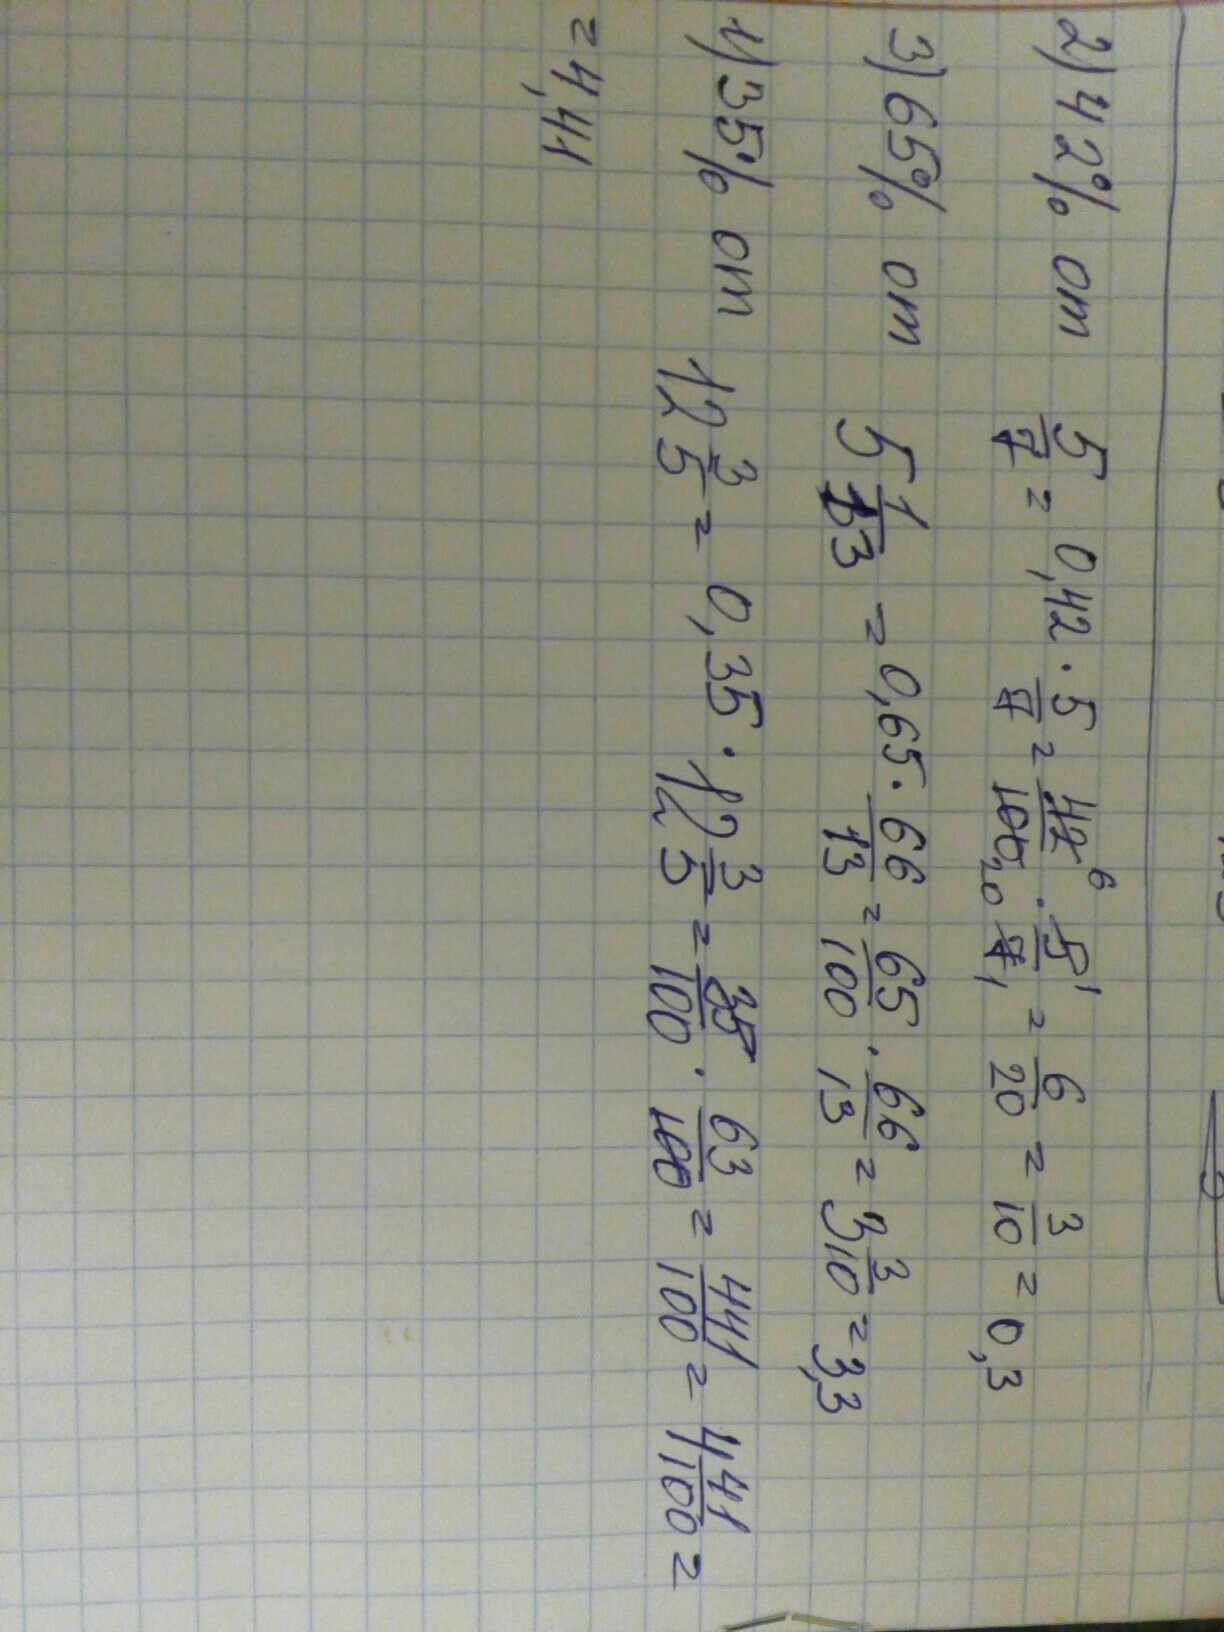 2) 42% от 5/7 = 0,42 · 5/7 = 42/100 6 20 · 5/7 1 1 = 6/20 = 3/10 = 0,3
3) 65% от 5 1/13 = 0,65 · 66/13 = 65/100 · 66/13 = 3 3/10 = 3,3
4) 35% от 12 3/5 = 0,35 · 12 3/5 = 35/100 · 63/100 = 441/100 = 4 41/100 =
= 4,41